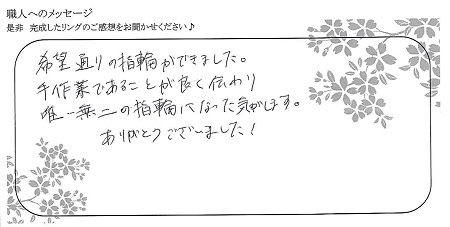 職人へのメッセージ
是非 完成したリングのご感想をお聞かせください♪
希望通りの指輪ができました。
手作業であることが良く伝わり
唯一無二の指輪になった気がします。
ありがとうございました!